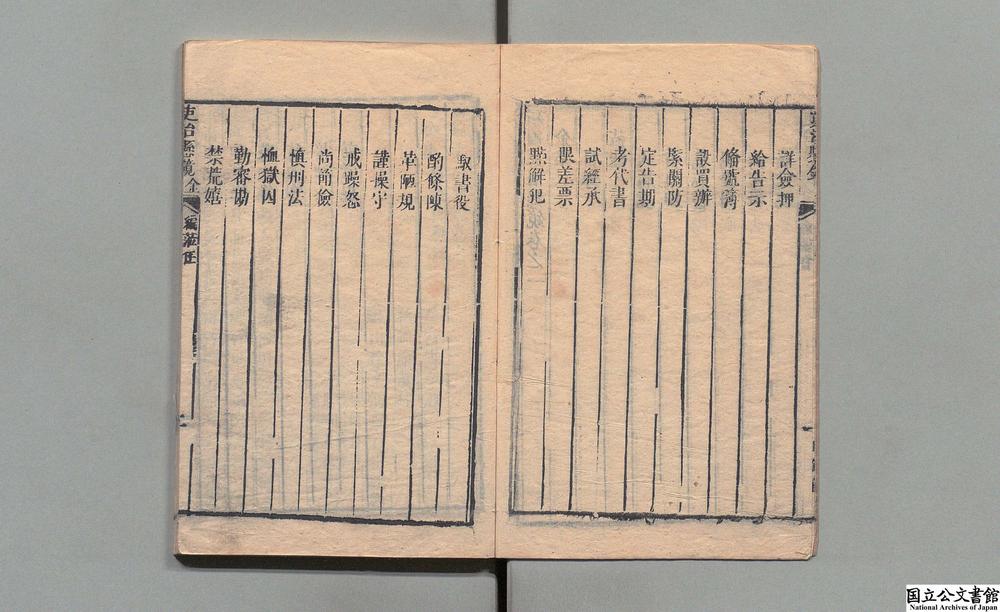 詳僉押
給告示
偹號簿
設買辦
緊關防
定告期
考代書
試經承
限差票
點解犯
馭書役
酌條陳
革陋規
謹操守
戒躁怒
尚節儉
慎刑法
恤獄囚
勤審勘
禁荒嬉
吏治懸鏡
蒞任
国立公文書館
National Archives of Japan